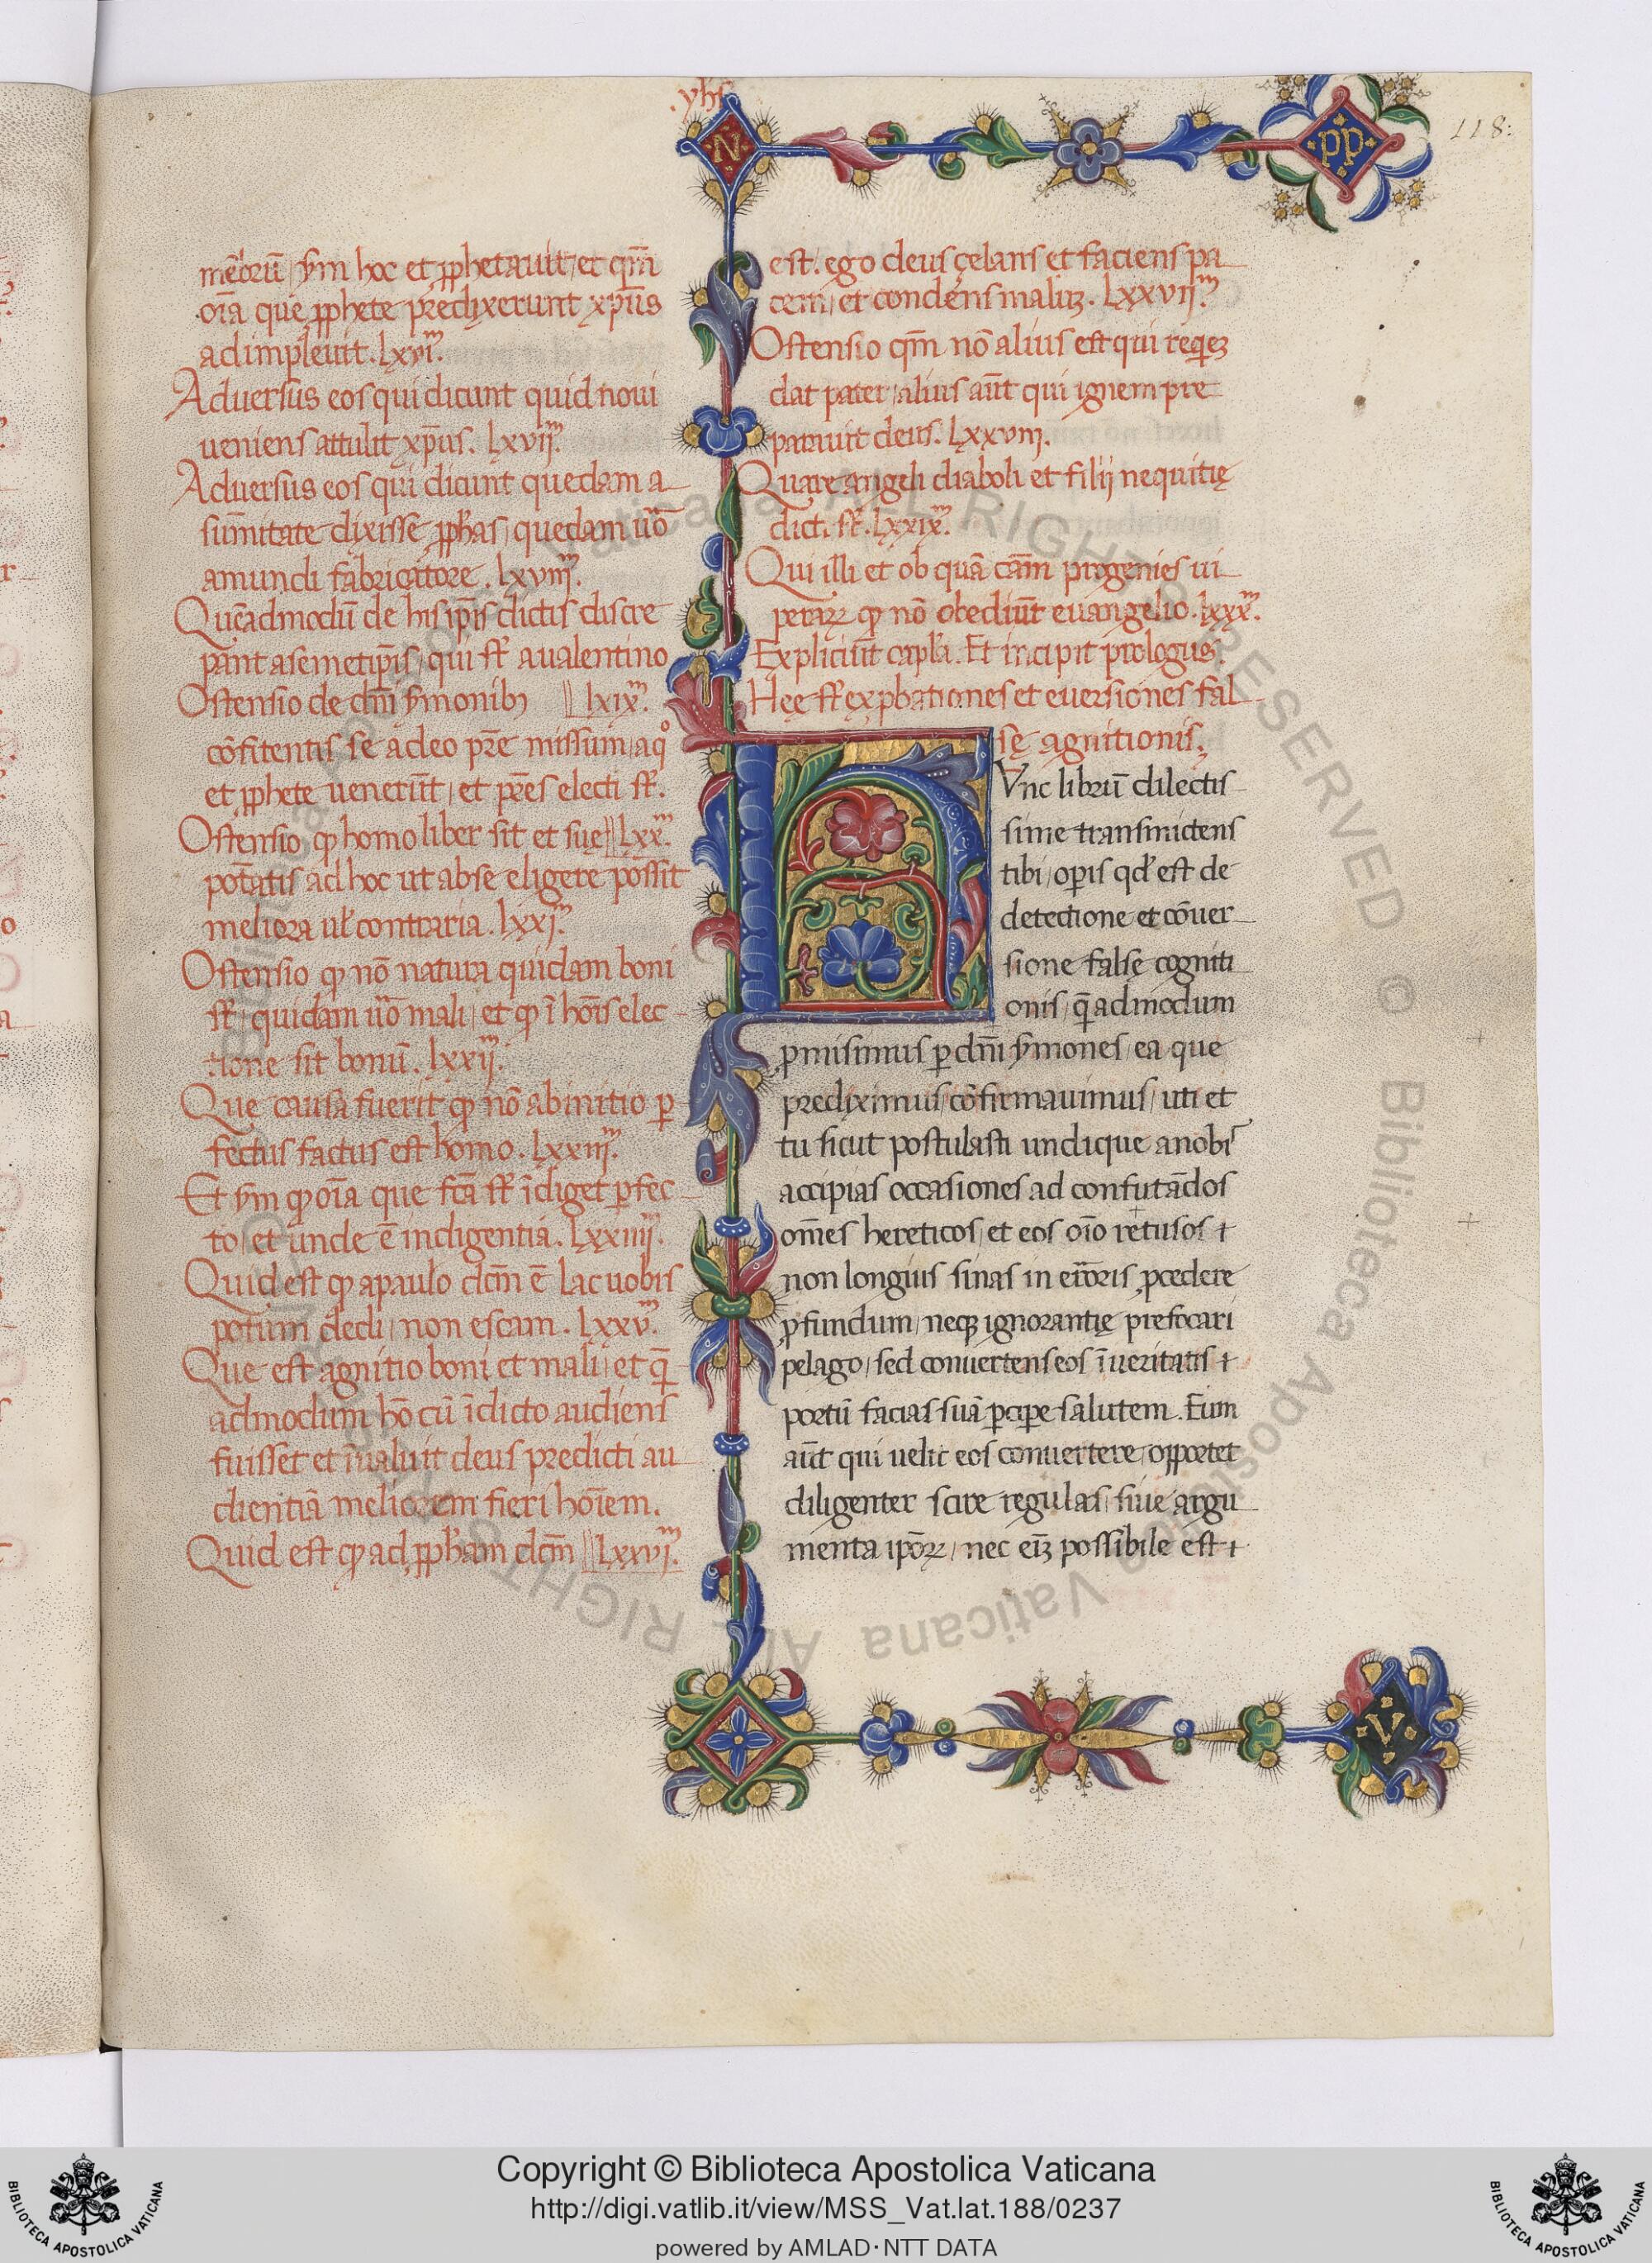 .yhs
N
pp
118:
mẽorũ, ẙm hoc et ꝓphetauit, et qm̃
oĩa que ꝓphete predixerunt xp̃us
adimpleuit. lxvi.ᵐ
Aduersus eos qui dicunt quid noui
ueniens attulit xp̃us. lxvij.ᵐ
Aduersus eos qui dicunt quedam a
sum̃itate dixisse ꝓphas, quedam uõ
a mundi fabricatore. lxviij.ᵐ
Quẽadmodũ de his ip̃is dictis discre
pant a semetip̃is, qui st̃ a ualentino
Ostensio de dñi ẙmonibꝫ lxix.ᵐ
cõfitentis se adeo pr̃e missum, a qͦ
et ꝓphete uenerũt, et pr̃es electi st̃.
Ostensio ꝙ homo liber sit et sue lxx.ᵐ
potãtis ad hoc ut ab se eligere possit
meliora uł contraria. lxxj.ᵐ
Ostensio ꝙ nõ natura quidam boni
st̃, quidam uõ mali, et ꝙ ĩ hoĩs elec
tione sit bonũ. lxxij.ᵐ
Que causa fuerit ꝙ nõ ab initio ꝑ
fectus factus est homo. lxxiij.ᵐ
Et ẙm ꝙ oĩa que fcã st̃ ĩdiget ꝑfec
to, et unde ẽ indigentia. lxxiiij.ᵐ
Quid est ꝙ a paulo dcm̃ ẽ lac uobis
potum dedi, non escam. lxxv.ᵐ
Que est agnitio boni et mali, et q̃
admodum hõ cũ ĩdicto audiens
fuisset et ĩualuit deus predicti au
dientiã meliorem fieri hoĩem.
Quid est ꝙ ad ꝓpham dcm̃ lxxvi.ᵐ
est. ego deus çelans et faciens pa
cem, et condens malũ. lxxvij.ᵐ
Ostensio qm̃ nõ alius est qui reqiẽ
dat pater, alius aũt qui ignem pre
parauit deus. lxxviij.
Quare angeli diaboli et filij nequitię
dicti st̃. lxxix.ᵐ
Qui illi et ob quã cãm progenies ui
perarꝝ ꝙ nõ obediũt euangelio. lxxx.ᵐ
Expliciũt capłа. Et incipit prologus.
Hęe st̃ exꝓbationes et euersiones fal
sę agnitionis.
Vnc librũ dilectis
sime transmictens
tibi, oꝑis qđ est de
detectione et cõuer
sione false cogniti
onis, q̃admodum
ꝓmisimus ꝑ dñi ẙmones, ea que
prediximus, cõfirmauimus, uti et
tu sicut postulasti undique a nobis
accipias occasiones ad confutãdos
om̃es hereticos, et eos oĩo retusos
non longius sinas in erroris ꝓcedere
ꝓfundum, neqꝫ ignorantię prefocari
pelago, sed conuertens eos ĩ ueritatis
portũ facias suã ꝑciꝑe salutem. Eum
aũt qui uelit eos conuertere, opportet
diligenter scire regulas, siue argu
menta ipõꝝ, nec eĩꝫ possibile est
V
Copyright © Biblioteca Apostolica Vaticana
http://digi.vatlib.it/view/MSS_Vat.lat.188/0237
powered by AMLAD・NTT DATA
BIBLIOTECA APOSTOLICA VATICANA
BIBLIOTECA APOSTOLICA VATICANA